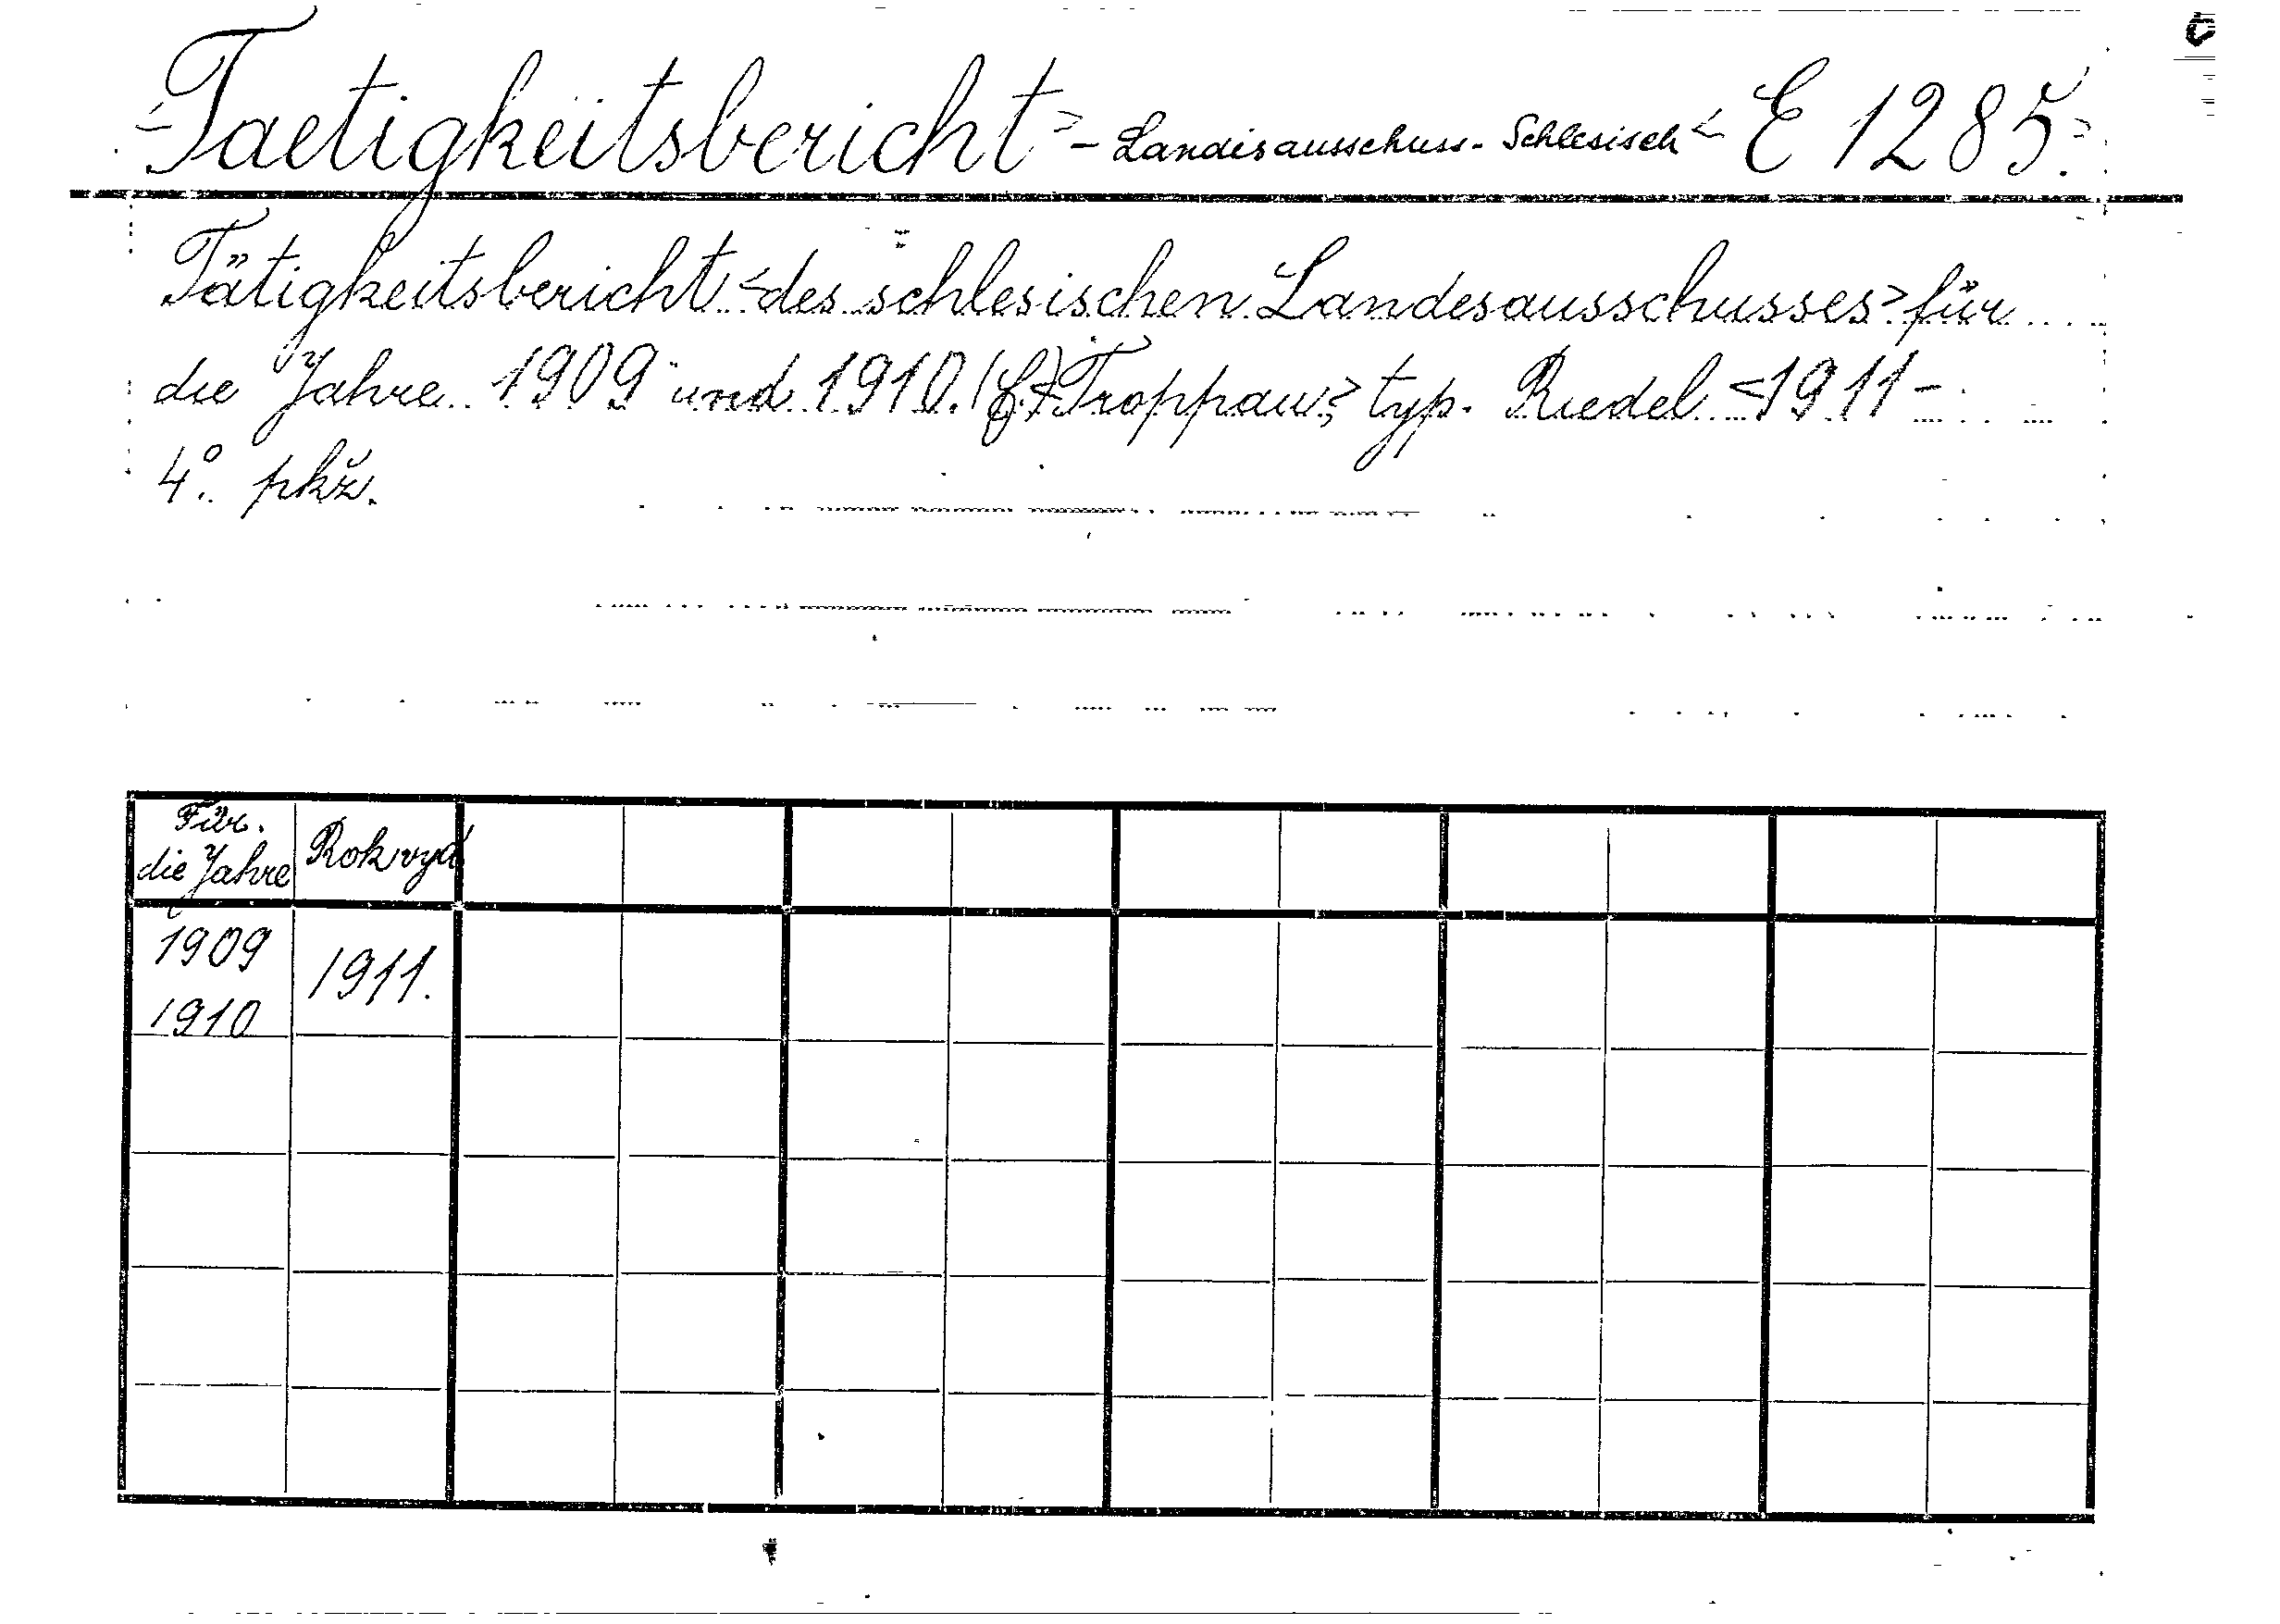 Taetigkeitsbericht - Landesausschuss - Schlesisch E 1285.
Tätigkeitsbericht <des schlesischen Landesausschusses> für
die Jahre 1909 und 1910. Troppau, typ. Riedel <1911-
4°. pkž.
Für die Jahre Rok vyd
1909 1910 1911.